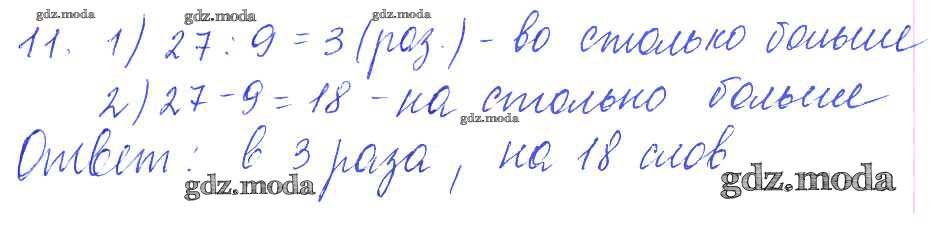 gdz.moda gdz.moda gdz.moda
11. 1) 27 : 9 = 3 (раз.) - во столько больше
2) 27 - 9 = 18 - на столько больше
gdz.moda
Ответ: в 3 раза, на 18 слов
gdz.moda gdz.moda